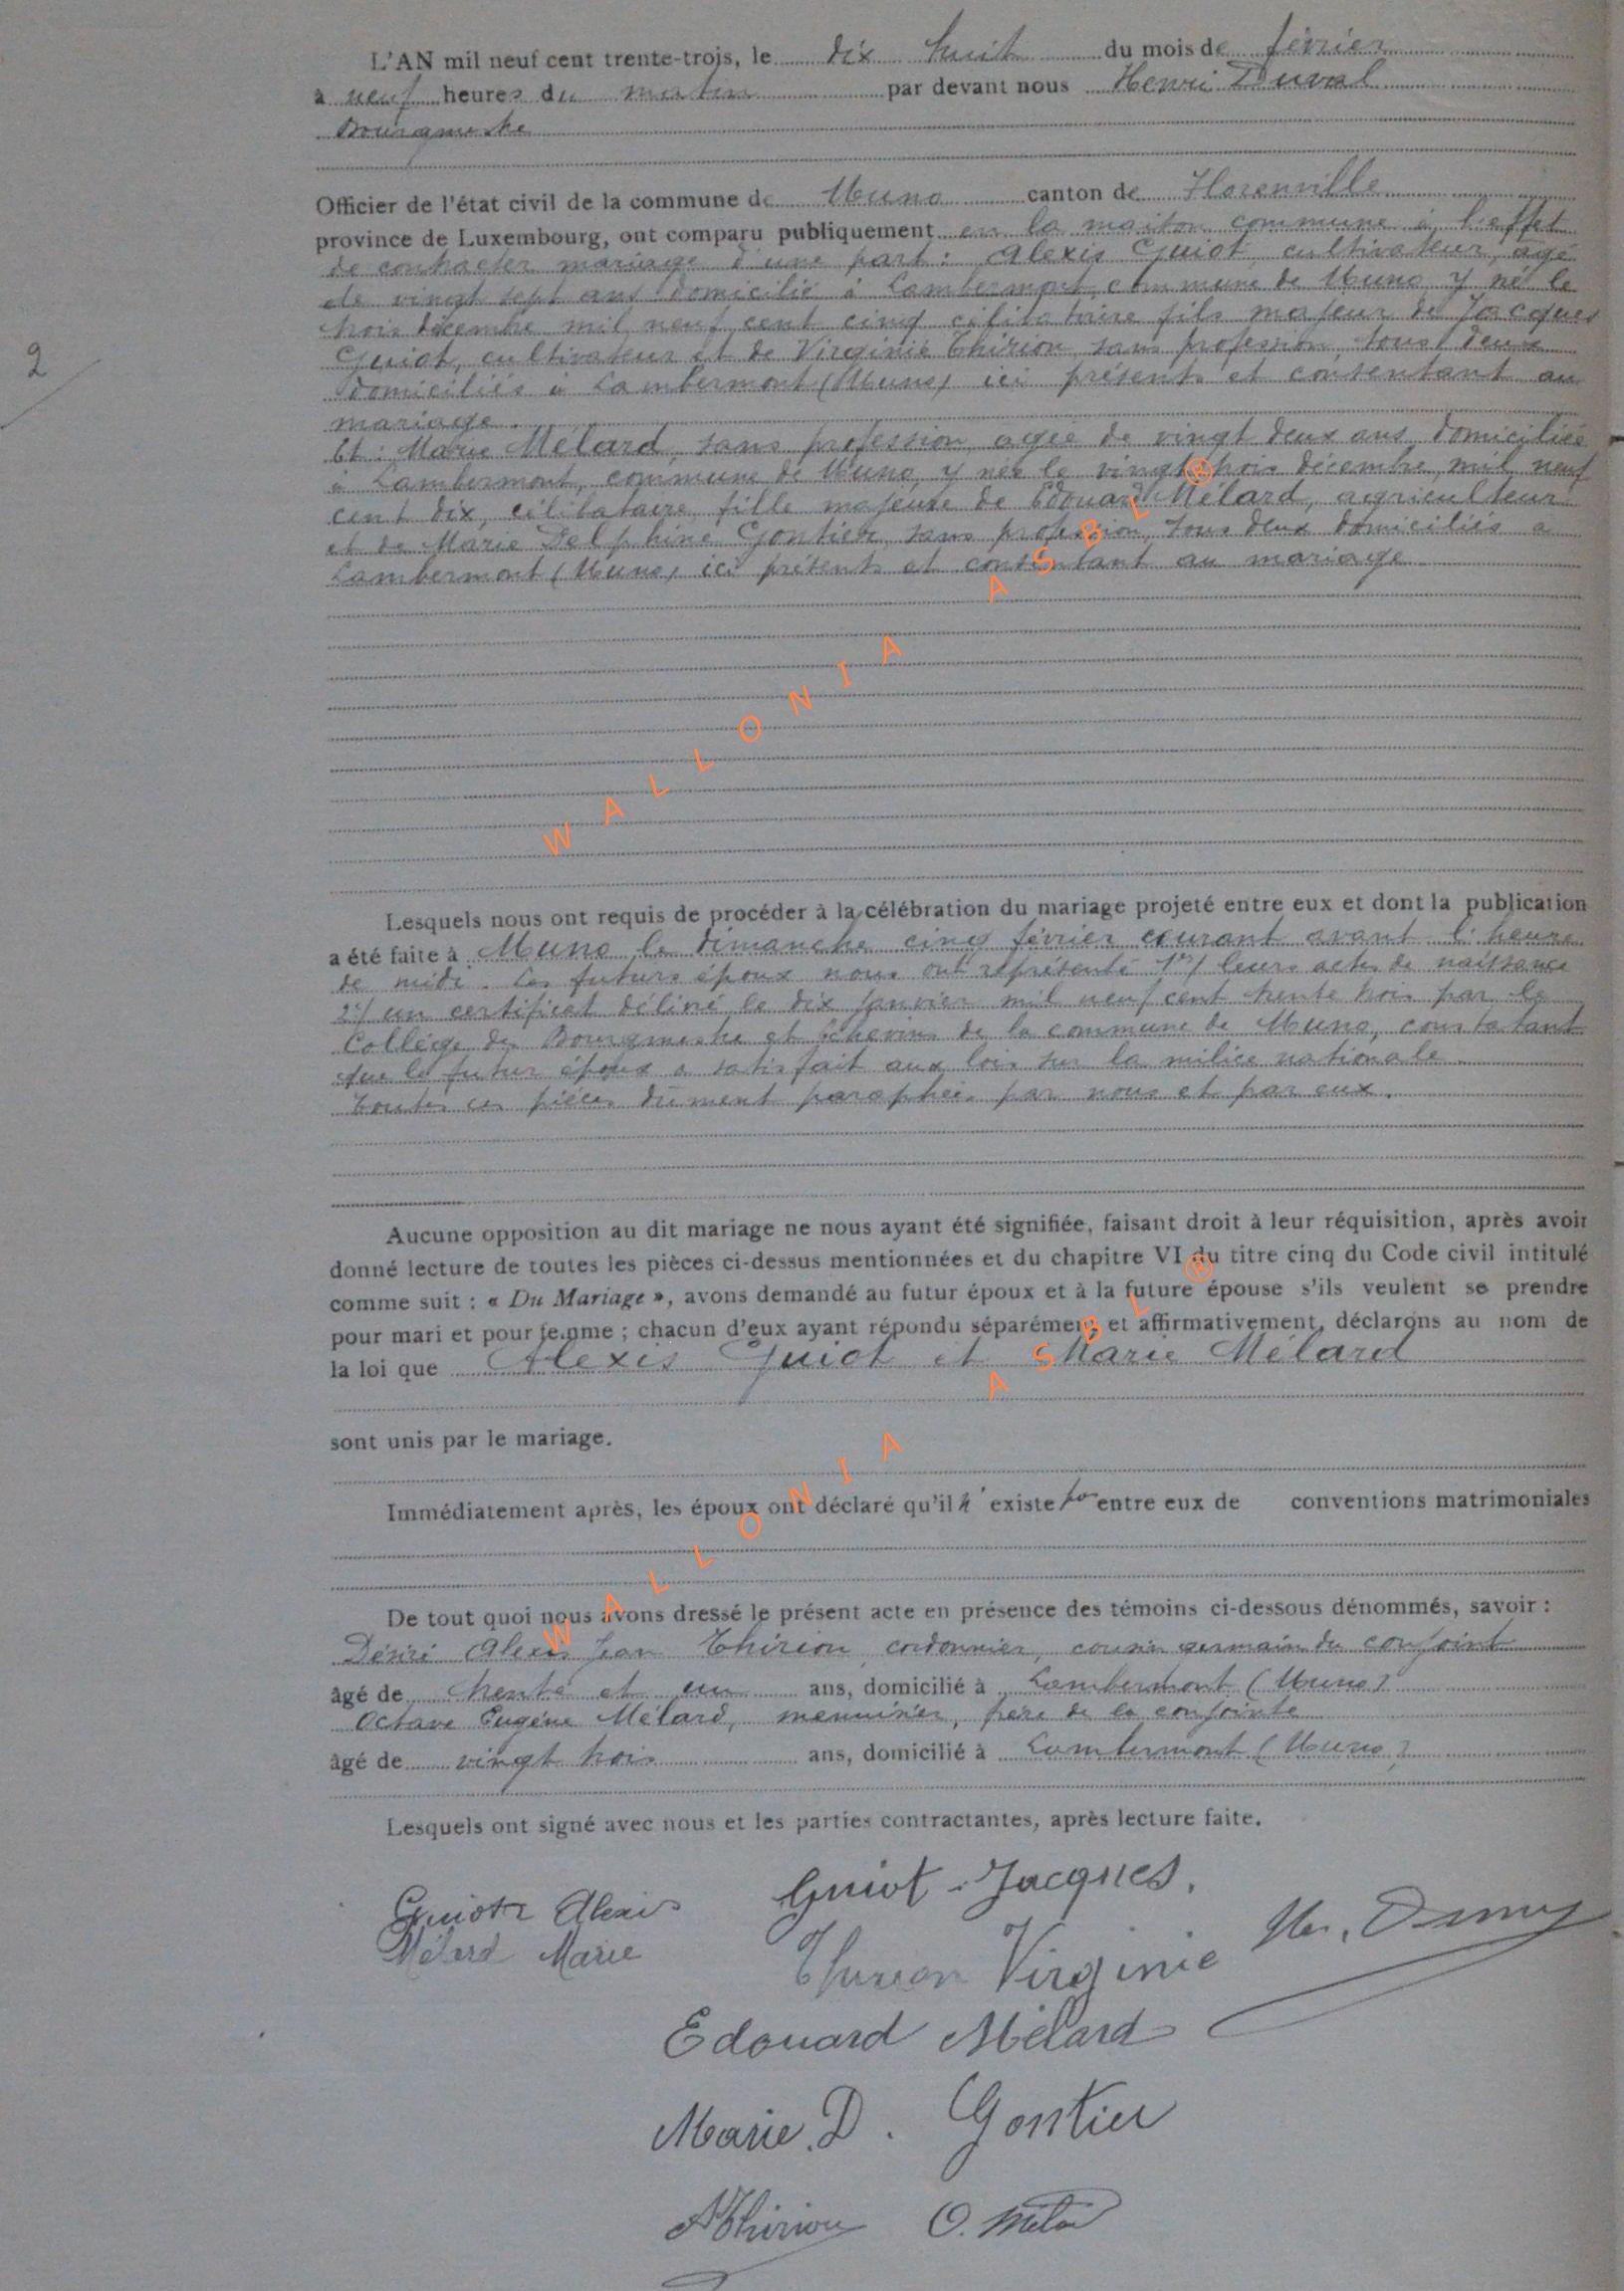 L'AN mil neuf cent trente-trois, le dix huit du mois de février
à neuf heures du matin par devant nous Henri Duval
Bourgmestre
Officier de l'état civil de la commune de Muno canton de Florenville
province de Luxembourg, ont comparu publiquement en la maison commune à l'effet
de contracter mariage d'une part : Alexis Guiot, cultivateur, âgé
de vingt sept ans domicilié à Lambermont, commune de Muno y né le
trois décembre mil neuf cent cinq célibataire fils majeur de Jacques
Guiot, cultivateur et de Virginie Thirion, sans profession, tous deux
domiciliés à Lambermont (Muno) ici présents et consentant au
mariage.
Et : Marie Mélard, sans profession, agée de vingt deux ans, domiciliée
à Lambermont, commune de Muno, y née le vingt trois décembre mil neuf
cent dix, célibataire, fille majeure de Edouard Mélard, agriculteur
et de Marie Delphine Gontier, sans profession, tous deux domiciliés à
Lambermont (Muno) ici présents et consentant au mariage
Lesquels nous ont requis de procéder à la célébration du mariage projeté entre eux et dont la publication
a été faite à Muno le dimanche cinq février courant avant l'heure
de midi. Les futurs époux nous ont représenté 1°/ leurs actes de naissance
2°/ un certificat délivré le dix janvier mil neuf cent trente trois par le
Collège des Bourgmestre et Echevins de la commune de Muno, constatant
que le futur époux a satisfait aux lois sur la milice nationale.
Toutes ces pièces dûment paraphées par nous et par eux.
Aucune opposition au dit mariage ne nous ayant été signifiée, faisant droit à leur réquisition, après avoir
donné lecture de toutes les pièces ci-dessus mentionnées et du chapitre VI du titre cinq du Code civil intitulé
comme suit : « Du Mariage », avons demandé au futur époux et à la future épouse s'ils veulent se prendre
pour mari et pour femme ; chacun d'eux ayant répondu séparément et affirmativement, déclarons au nom de
la loi que Alexis Guiot et Marie Mélard
sont unis par le mariage.
Immédiatement après, les époux ont déclaré qu'il n'existe pas entre eux de conventions matrimoniales
De tout quoi nous avons dressé le présent acte en présence des témoins ci-dessous dénommés, savoir :
Désiré Alexis Jean Thirion, cordonnier, cousin germain du conjoint
âgé de trente et un ans, domicilié à Lambermont (Muno)
Octave Eugène Mélard, menuisier, frère de la conjointe
âgé de vingt trois ans, domicilié à Lambermont (Muno)
Lesquels ont signé avec nous et les parties contractantes, après lecture faite.
Guiot Alexis
Guiot Jacques.
Mélard Marie
Thirion Virginie
Edouard Mélard
Marie. D. Gontier
Thirion O. Mélard
2
WALLONIA ASBL ®
WALLONIA ASBL ®